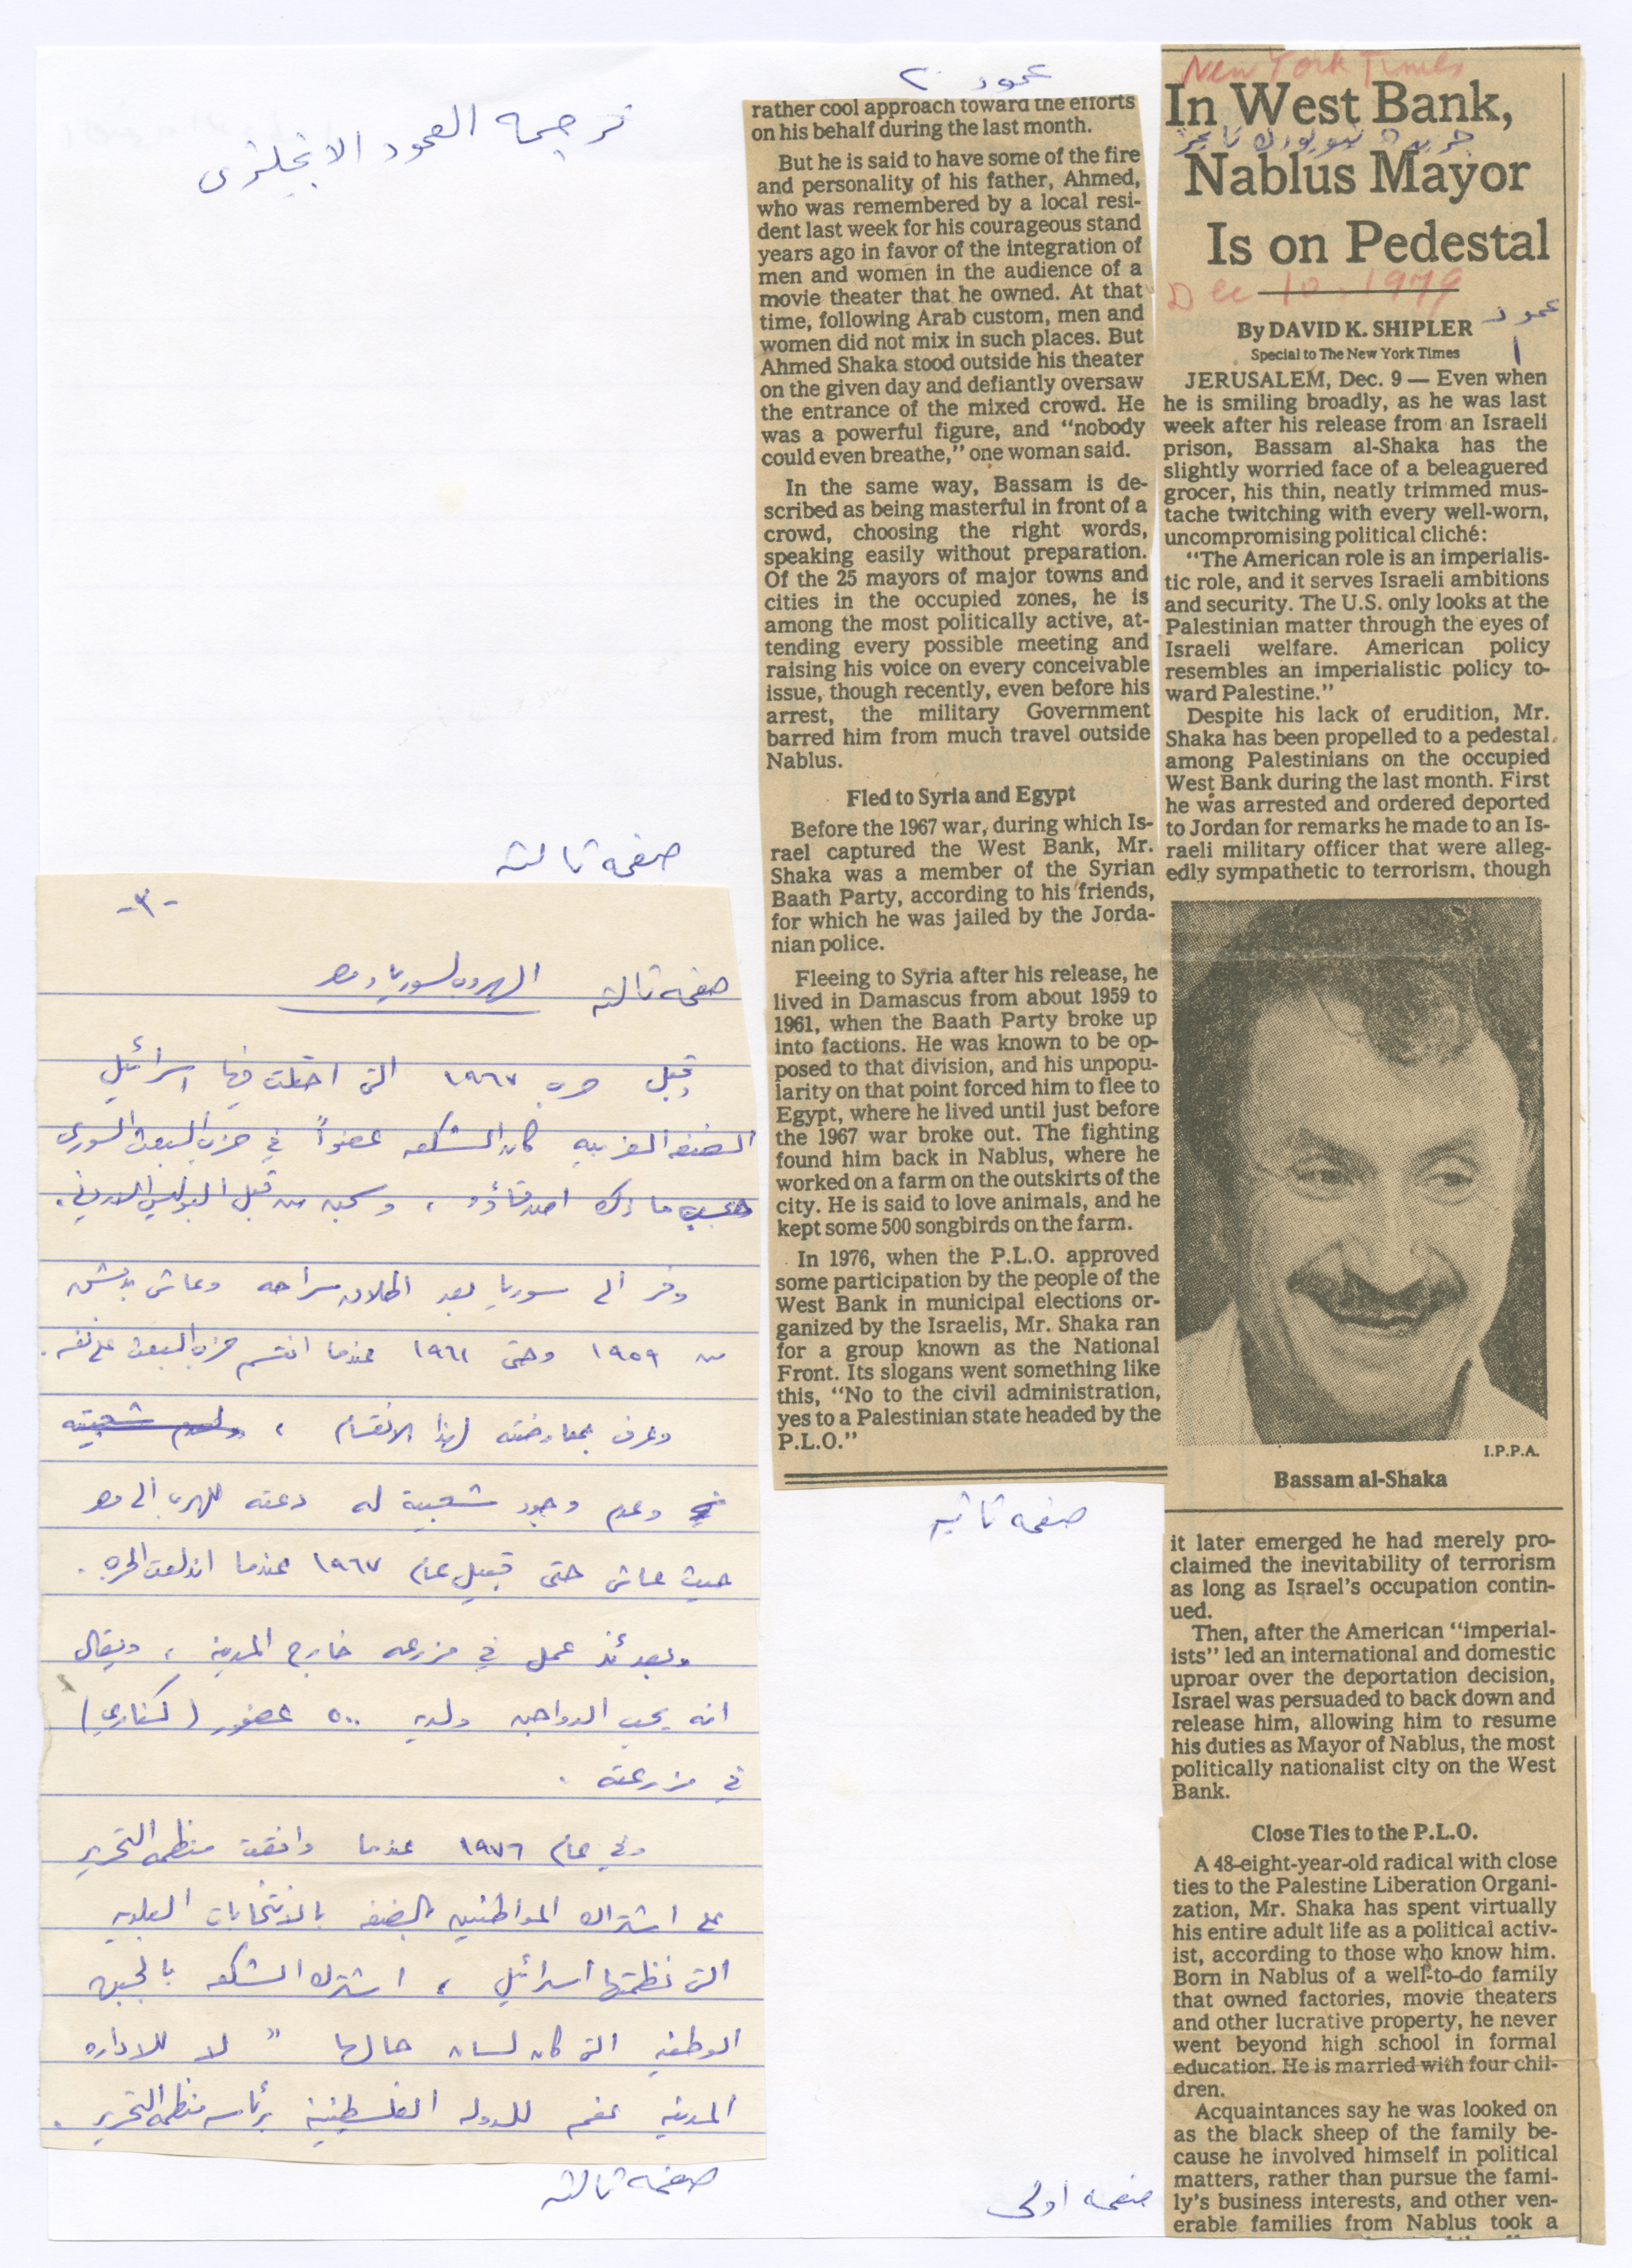 New York Times
In West Bank,
جريدة نيويورك تايمز
Nablus Mayor
Is on Pedestal
Dec 10, 1979
By DAVID K. SHIPLER
عمود
١
Special to The New York Times
JERUSALEM, Dec. 9 — Even when
he is smiling broadly, as he was last
week after his release from an Israeli
prison, Bassam al-Shaka has the
slightly worried face of a beleaguered
grocer, his thin, neatly trimmed mus-
tache twitching with every well-worn,
uncompromising political cliché:
"The American role is an imperialis-
tic role, and it serves Israeli ambitions
and security. The U.S. only looks at the
Palestinian matter through the eyes of
Israeli welfare. American policy
resembles an imperialistic policy to-
ward Palestine."
Despite his lack of erudition, Mr.
Shaka has been propelled to a pedestal
among Palestinians on the occupied
West Bank during the last month. First
he was arrested and ordered deported
to Jordan for remarks he made to an Is-
raeli military officer that were alleg-
edly sympathetic to terrorism, though
I.P.P.A.
Bassam al-Shaka
it later emerged he had merely pro-
claimed the inevitability of terrorism
as long as Israel's occupation contin-
ued.
Then, after the American "imperial-
ists" led an international and domestic
uproar over the deportation decision,
Israel was persuaded to back down and
release him, allowing him to resume
his duties as Mayor of Nablus, the most
politically nationalist city on the West
Bank.
Close Ties to the P.L.O.
A 48-eight-year-old radical with close
ties to the Palestine Liberation Organi-
zation, Mr. Shaka has spent virtually
his entire adult life as a political activ-
ist, according to those who know him.
Born in Nablus of a well-to-do family
that owned factories, movie theaters
and other lucrative property, he never
went beyond high school in formal
education. He is married with four chil-
dren.
Acquaintances say he was looked on
as the black sheep of the family be-
cause he involved himself in political
matters, rather than pursue the fami-
ly's business interests, and other ven-
erable families from Nablus took a
صفحه اولى
عمود ٢
rather cool approach toward the efforts
on his behalf during the last month.
But he is said to have some of the fire
and personality of his father, Ahmed,
who was remembered by a local resi-
dent last week for his courageous stand
years ago in favor of the integration of
men and women in the audience of a
movie theater that he owned. At that
time, following Arab custom, men and
women did not mix in such places. But
Ahmed Shaka stood outside his theater
on the given day and defiantly oversaw
the entrance of the mixed crowd. He
was a powerful figure, and "nobody
could even breathe," one woman said.
In the same way, Bassam is de-
scribed as being masterful in front of a
crowd, choosing the right words,
speaking easily without preparation.
Of the 25 mayors of major towns and
cities in the occupied zones, he is
among the most politically active, at-
tending every possible meeting and
raising his voice on every conceivable
issue, though recently, even before his
arrest, the military Government
barred him from much travel outside
Nablus.
Fled to Syria and Egypt
Before the 1967 war, during which Is-
rael captured the West Bank, Mr.
Shaka was a member of the Syrian
Baath Party, according to his friends,
for which he was jailed by the Jorda-
nian police.
Fleeing to Syria after his release, he
lived in Damascus from about 1959 to
1961, when the Baath Party broke up
into factions. He was known to be op-
posed to that division, and his unpopu-
larity on that point forced him to flee to
Egypt, where he lived until just before
the 1967 war broke out. The fighting
found him back in Nablus, where he
worked on a farm on the outskirts of the
city. He is said to love animals, and he
kept some 500 songbirds on the farm.
In 1976, when the P.L.O. approved
some participation by the people of the
West Bank in municipal elections or-
ganized by the Israelis, Mr. Shaka ran
for a group known as the National
Front. Its slogans went something like
this, "No to the civil administration,
yes to a Palestinian state headed by the
P.L.O."
صفحه تانيه
ترجمه العمود الانجليزى
صفحه تالته
-٣-
صفحه تالته الهروب لسوريا ومصر
وقبل حرب ١٩٦٧ التي احتلت فيها اسرائيل
الضفه الغربيه كان الشكعه عضواً في حزب البعث السوري
حسب ما ذكر اصدقاؤه ، وسجن من قبل البوليس الاردني .
وفر الى سوريا بعد اطلاق سراحه وعاش بدمشق
من ١٩٥٩ وحتى ١٩٦١ عندما انقسم حزب البعث على نفسه .
وعرف بمعارضته لهذا الانقسام ، ولعدم شعبيته
وعدم وجود شعبية له دعته للهرب الى مصر
حيث عاش حتى قبيل عام ١٩٦٧ عندما اندلعت الحرب .
وبعدئذ عمل في مزرعه خارج المدينه ، ويقال
انه يحب الدواجن ولديه ٥٠٠ عصفور (كناري)
في مزرعته .
وفي عام ١٩٧٦ عندما وافقت منظمه التحرير
على اشتراك المواطنين بالضفه بالانتخابات البلديه
التي نظمتها اسرائيل ، اشترك الشكعه بالجبهه
الوطنيه التي كان لسان حالها " لا للاداره
المدنيه نعم للدوله الفلسطينية برئاسه منظمه التحرير .
صفحه تالته